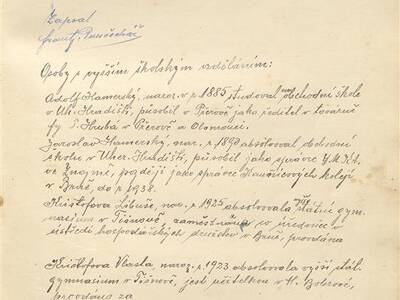 Zapsal
Osoby s vyšším školským vzděláním:
Adolf Hamerský, naroz. v r. 1885 studoval obchodní škole
v Uh. Hradišti, působil v Přerově jako ředitel v továrně
fy Hrubá v Přerově a Olomouci.
Jaroslav Hamerský, nar. r. 1890 absolvoval obchodní
školu v Uher. Hradišti, působil jako správce
ve Znojmě, později jako správce kolejí
v Brně, do r. 1938.
Krištofova Libuše, nar. r. 1925 absolvovala státní gym-
nasium v Tišnově, zaměstnána co úřednice
ústředí hospodářských družstev v Brně, provdána
Krištofova Vlasta naroz. r. 1923 absolvovala vyšší stát.
gymnasium v Tišnově, jest učitelkou v H.
provdána za